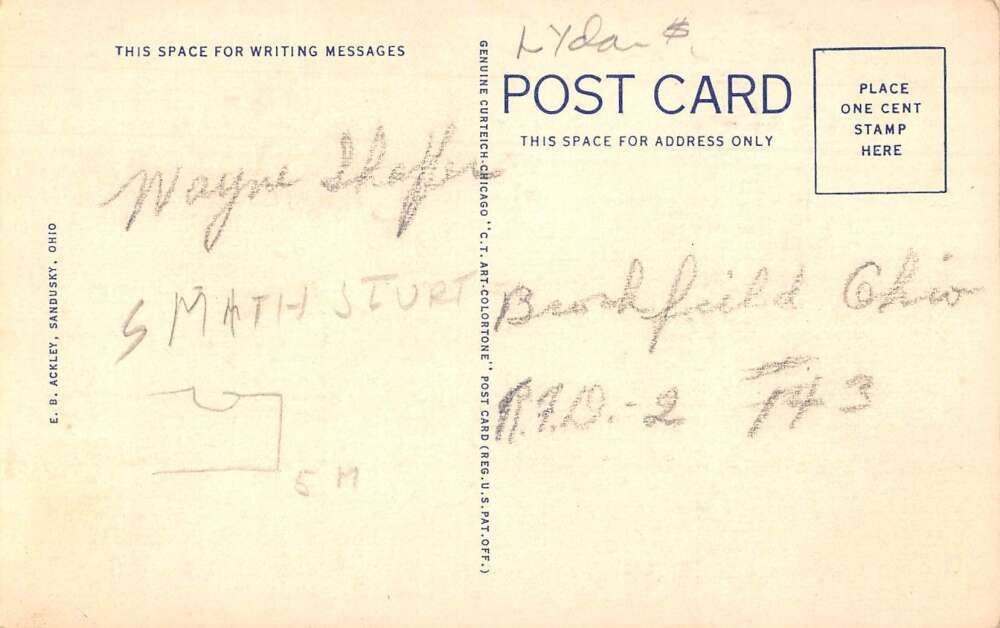 THIS SPACE FOR WRITING MESSAGES
Wayne Shaffer
S MATH STURT
5 M
E. B. ACKLEY, SANDUSKY, OHIO
GENUINE CURTEICH-CHICAGO "C.T. ART-COLORTONE" POST CARD (REG. U.S. PAT. OFF.)
POST CARD
THIS SPACE FOR ADDRESS ONLY
PLACE
ONE CENT
STAMP
HERE
Brookfield Ohio
R.F.D.-2